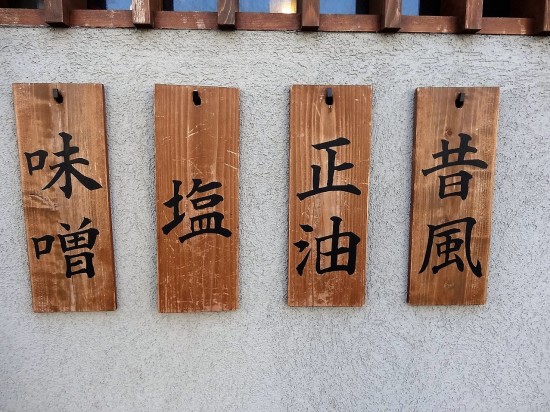 昔風
正油
塩
味噌